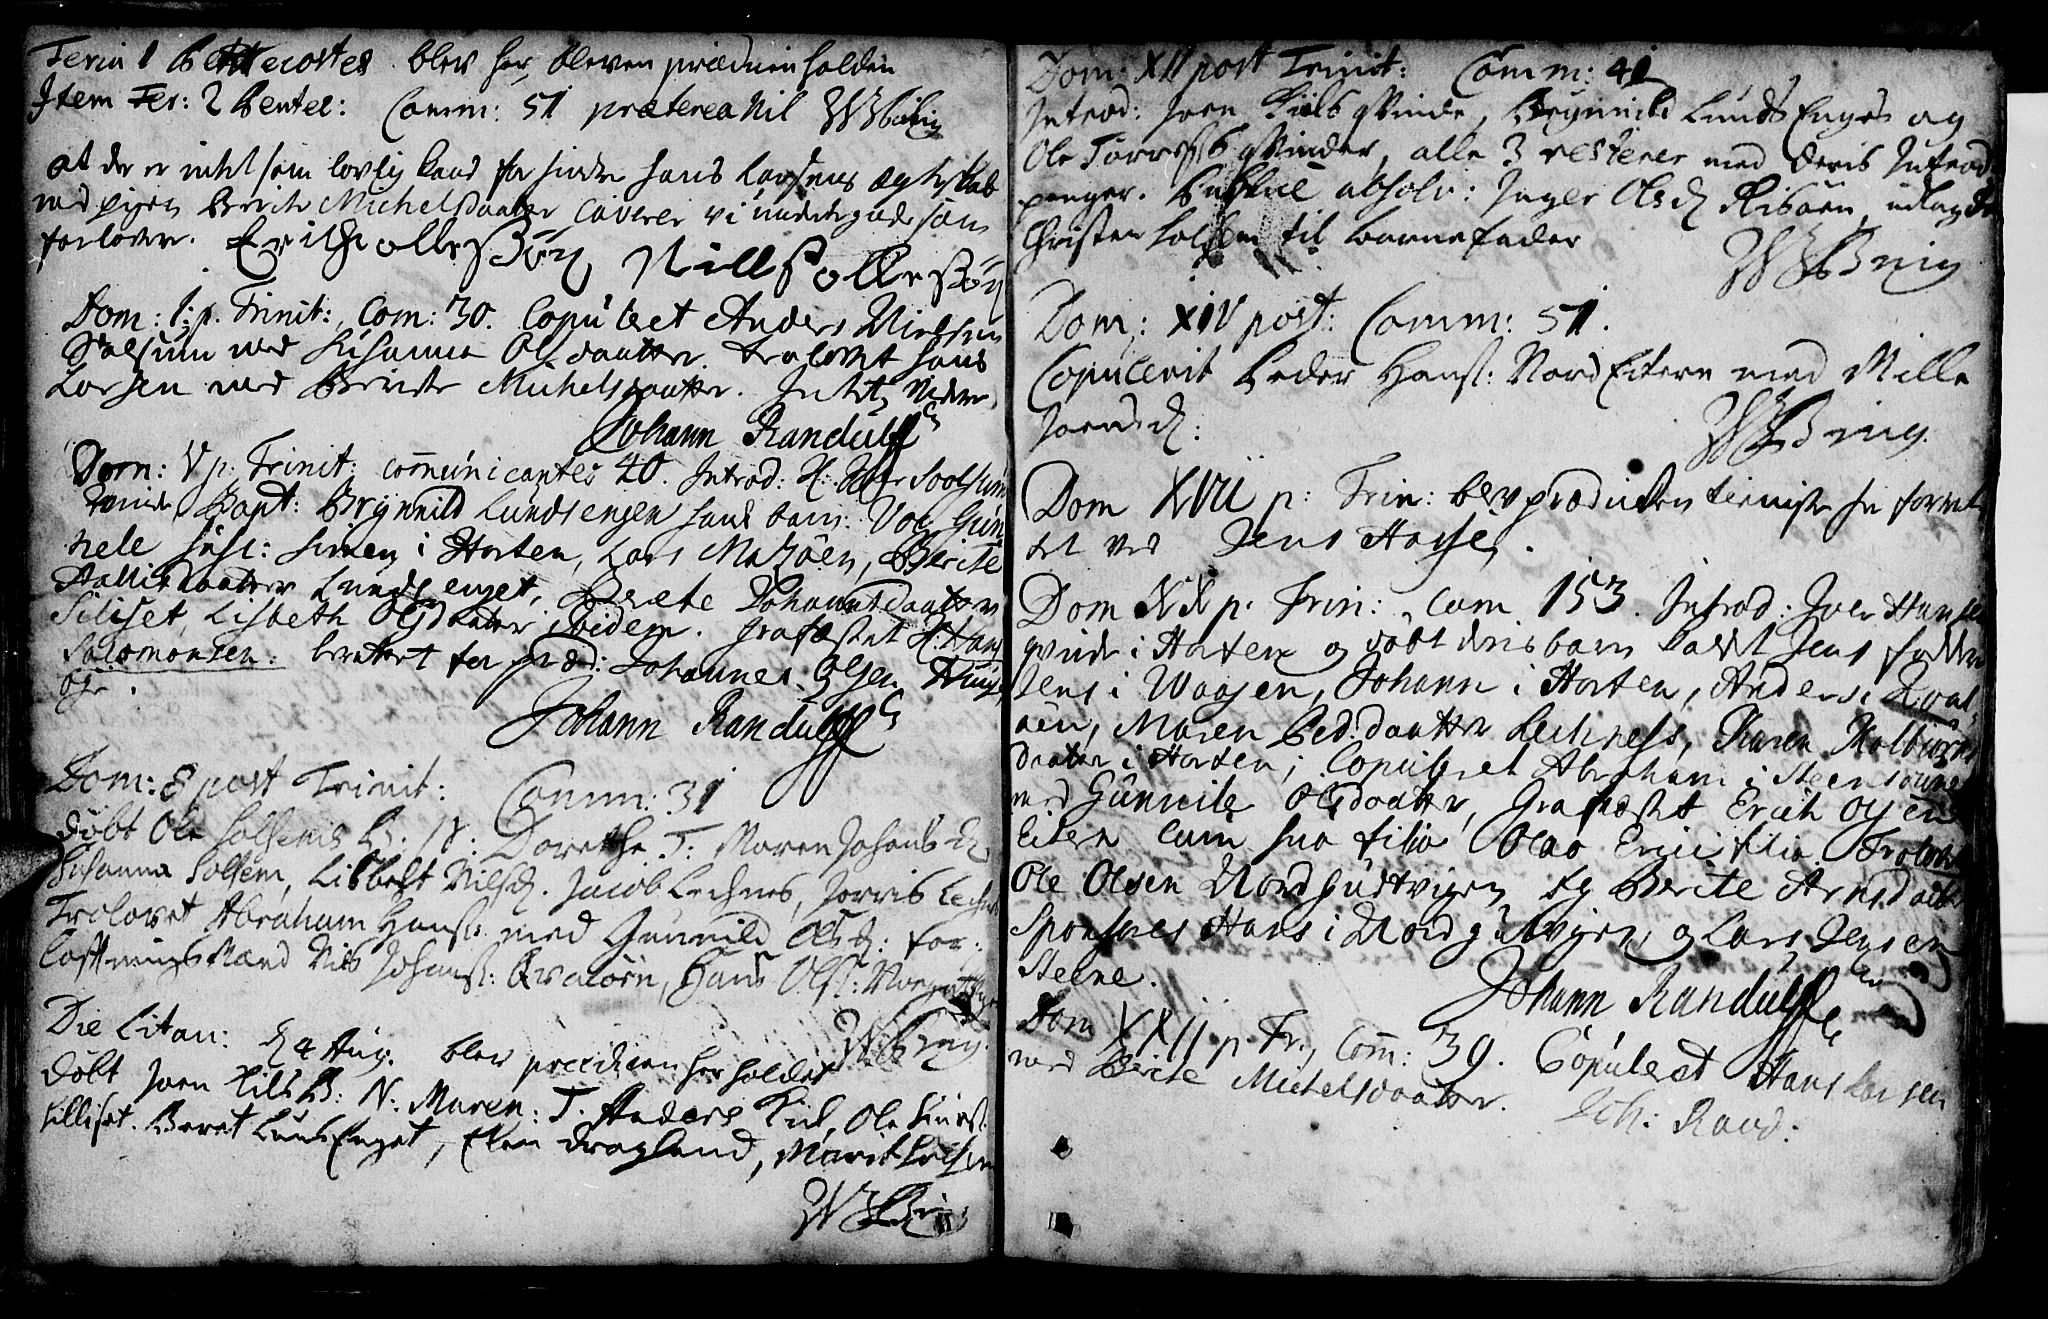 Feria 1 Pentecostes blev her, bleven prædiken holden
Item Fer: 2 Pentec: Comm: 51 præterea Nil
at der er intet som lovlig kand forhindre Hans Larsens ægteskab
med pigen Berite Michelsdaatter, caverer vi underskrevne som
forlovere. Erich ollessøn Nills ollessøn
Dom: 1: p. Trinit: Com: 30. Copuleret Anders Nielsen
Solsem med Susanna Olsdaatter. trolovet Hans
Larsen med Berite Michelsdaatter. Intet videre
Johann Randulff
Dom: V p: Trinit: communicantes 40. Introd: H: Iver Soolsem
qvinde Bapt: Brynnild Lundsengen hans barn: Voc: Gun
nele susc: Simen i Horten, Lars Madsøen, Berite
Hallisdaatter Lundsenget, Berete Johannsdaatter
Siliset, Lisbeth Olsdaatter ibidem. Grafæstet H: Hans
Salomonsen:                for præd: Johannes Olsen
øe.
Johann Randulff
Dom: 8 post Trinit: Comm: 31
døbt Ole Solsems B. N: Dorethe T. Maren Johans D.
Susanna Solsem, Lisbeht Nilsd. Jacob Lechnes, Jorris Lechnes
Trolovet Abraham Hans: med Gunnild Olsd: for:
lofternings Mænd Nils Johans: Qvaløen, Hans Ols:
Die Litan: d 4 Aug. blev prædiken her holdet
døbt Joen Kils B: N: Maren: T. Anders Kiil, Ole Simens:
Silliset. Beret Lunds Enget, Elen Dragland, Marit Solsem
Dom: XII post Trinit: Comm: 41
Introd: Joen Kiils Qvinde, Brynnild Lunds Enges og
Ole Torris: Qvinder, alle 3 resterer med deris Introd:
penger. Publice absolv: Inger Olsd Risøen, udlagde
Christen Solsem til barnefader
Dom: XIV post: Comm: 51.
Copulerit Peder Hans: Nord Eitern med Mille
Joensd:
Dom XVII p: Trin: blev prædiken tieniste her forret
tet ved Jens Hasse.
Dom XX p. Trin: com 153. Introd: Iver Hansen
qvinde i Horten og døbt deris barn kaldt Jens faddere
Jens i Waagen, Johann i Horten, Anders i Qval
øen, Maren Ped:daatter Lechness, Karen Kolbiørns
daatter i Horten; Copuleret Abraham i Steensøren
med Gunnile Olsdaatter, Grafæstet Erich Olsen
Eitern cum suo filio Olao Erici filio. Trolovet
Ole Olsen Nord Gudtvigen og Berite Arnsdaatter
Sponsores Hans i Nord gutvigen og Lars Jensen
Steene.
Johann Randulff
Dom XXII p. Tr: Com: 39. Copuleret Hans Larsen
med Berite Michelsdaatter.
Joh: Rand: